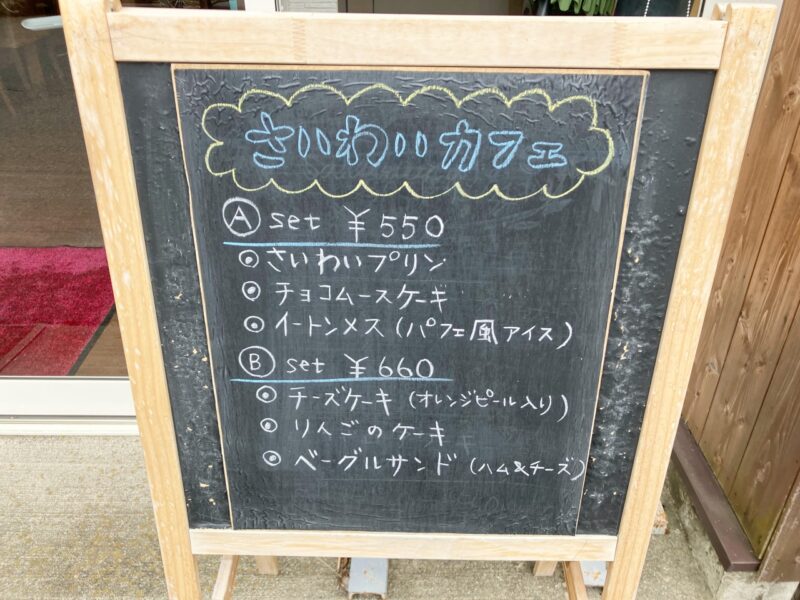 さいわいカフェ
Ⓐ set ¥550
◉さいわいプリン
◉チョコムースケーキ
◉イートンメス(パフェ風アイス)
Ⓑ set ¥660
◉チーズケーキ(オレンジピール入り)
◉りんごのケーキ
◉ベーグルサンド(ハム&チーズ)